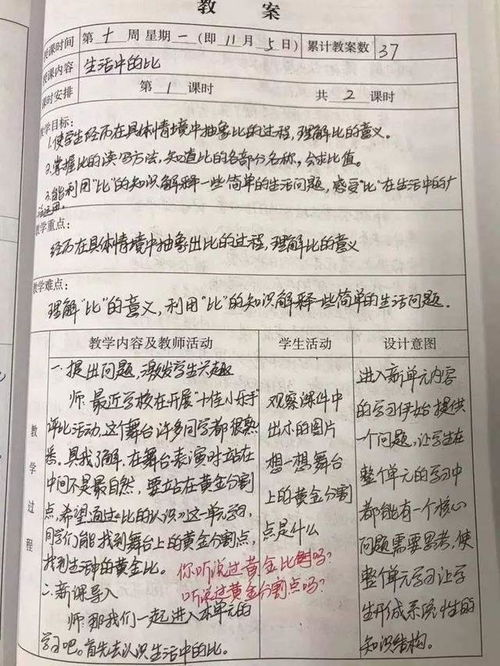 教 案
授课时间 第 十 周 星期 一 (即 11 月 5 日) 累计教案数 37
授课内容 生活中的比
课时安排 第 1 课时 共 2 课时
教学目标:
1.使学生经历在具体情境中抽象比的过程,理解比的意义。
2.掌握比的读写方法,知道比的各部分名称,会求比值。
3.能利用“比”的知识解释一些简单的生活问题,感受“比”在生活中的广
泛运用。
教学重点:
经历在具体情境中抽象出比的过程,理解比的意义
教学难点:
理解“比”的意义,利用“比”的知识解释一些简单的生活问题.
教学过程
教学内容及教师活动
一.提出问题,激发学生兴趣
师:最近学校在开展“十佳小歌手”
评比活动,这个舞台许多同学都很熟
悉。具我了解,在舞台表演时站在
中间不是最自然,要站在黄金分割
点,希望通过《比的认识》这一单元学习,
同学们能找到舞台上的黄金分割点,
找到生活中的黄金比。
你听说过黄金比例吗?
听说过黄金分割点吗?
二.新课导入
师:那我们一起进入本单元的
学习吧。首先去认识生活中的比。
学生活动
观察课件中
出示的图片
想一想舞台
上的黄金分割
点是什么
设计意图
进入新单元内容
的学习伊始提供
一个问题,让学生在
整个单元的学习中
都能有一个核心
问题需要思考,使
整个单元学习让学
生形成系统性的
知识结构。